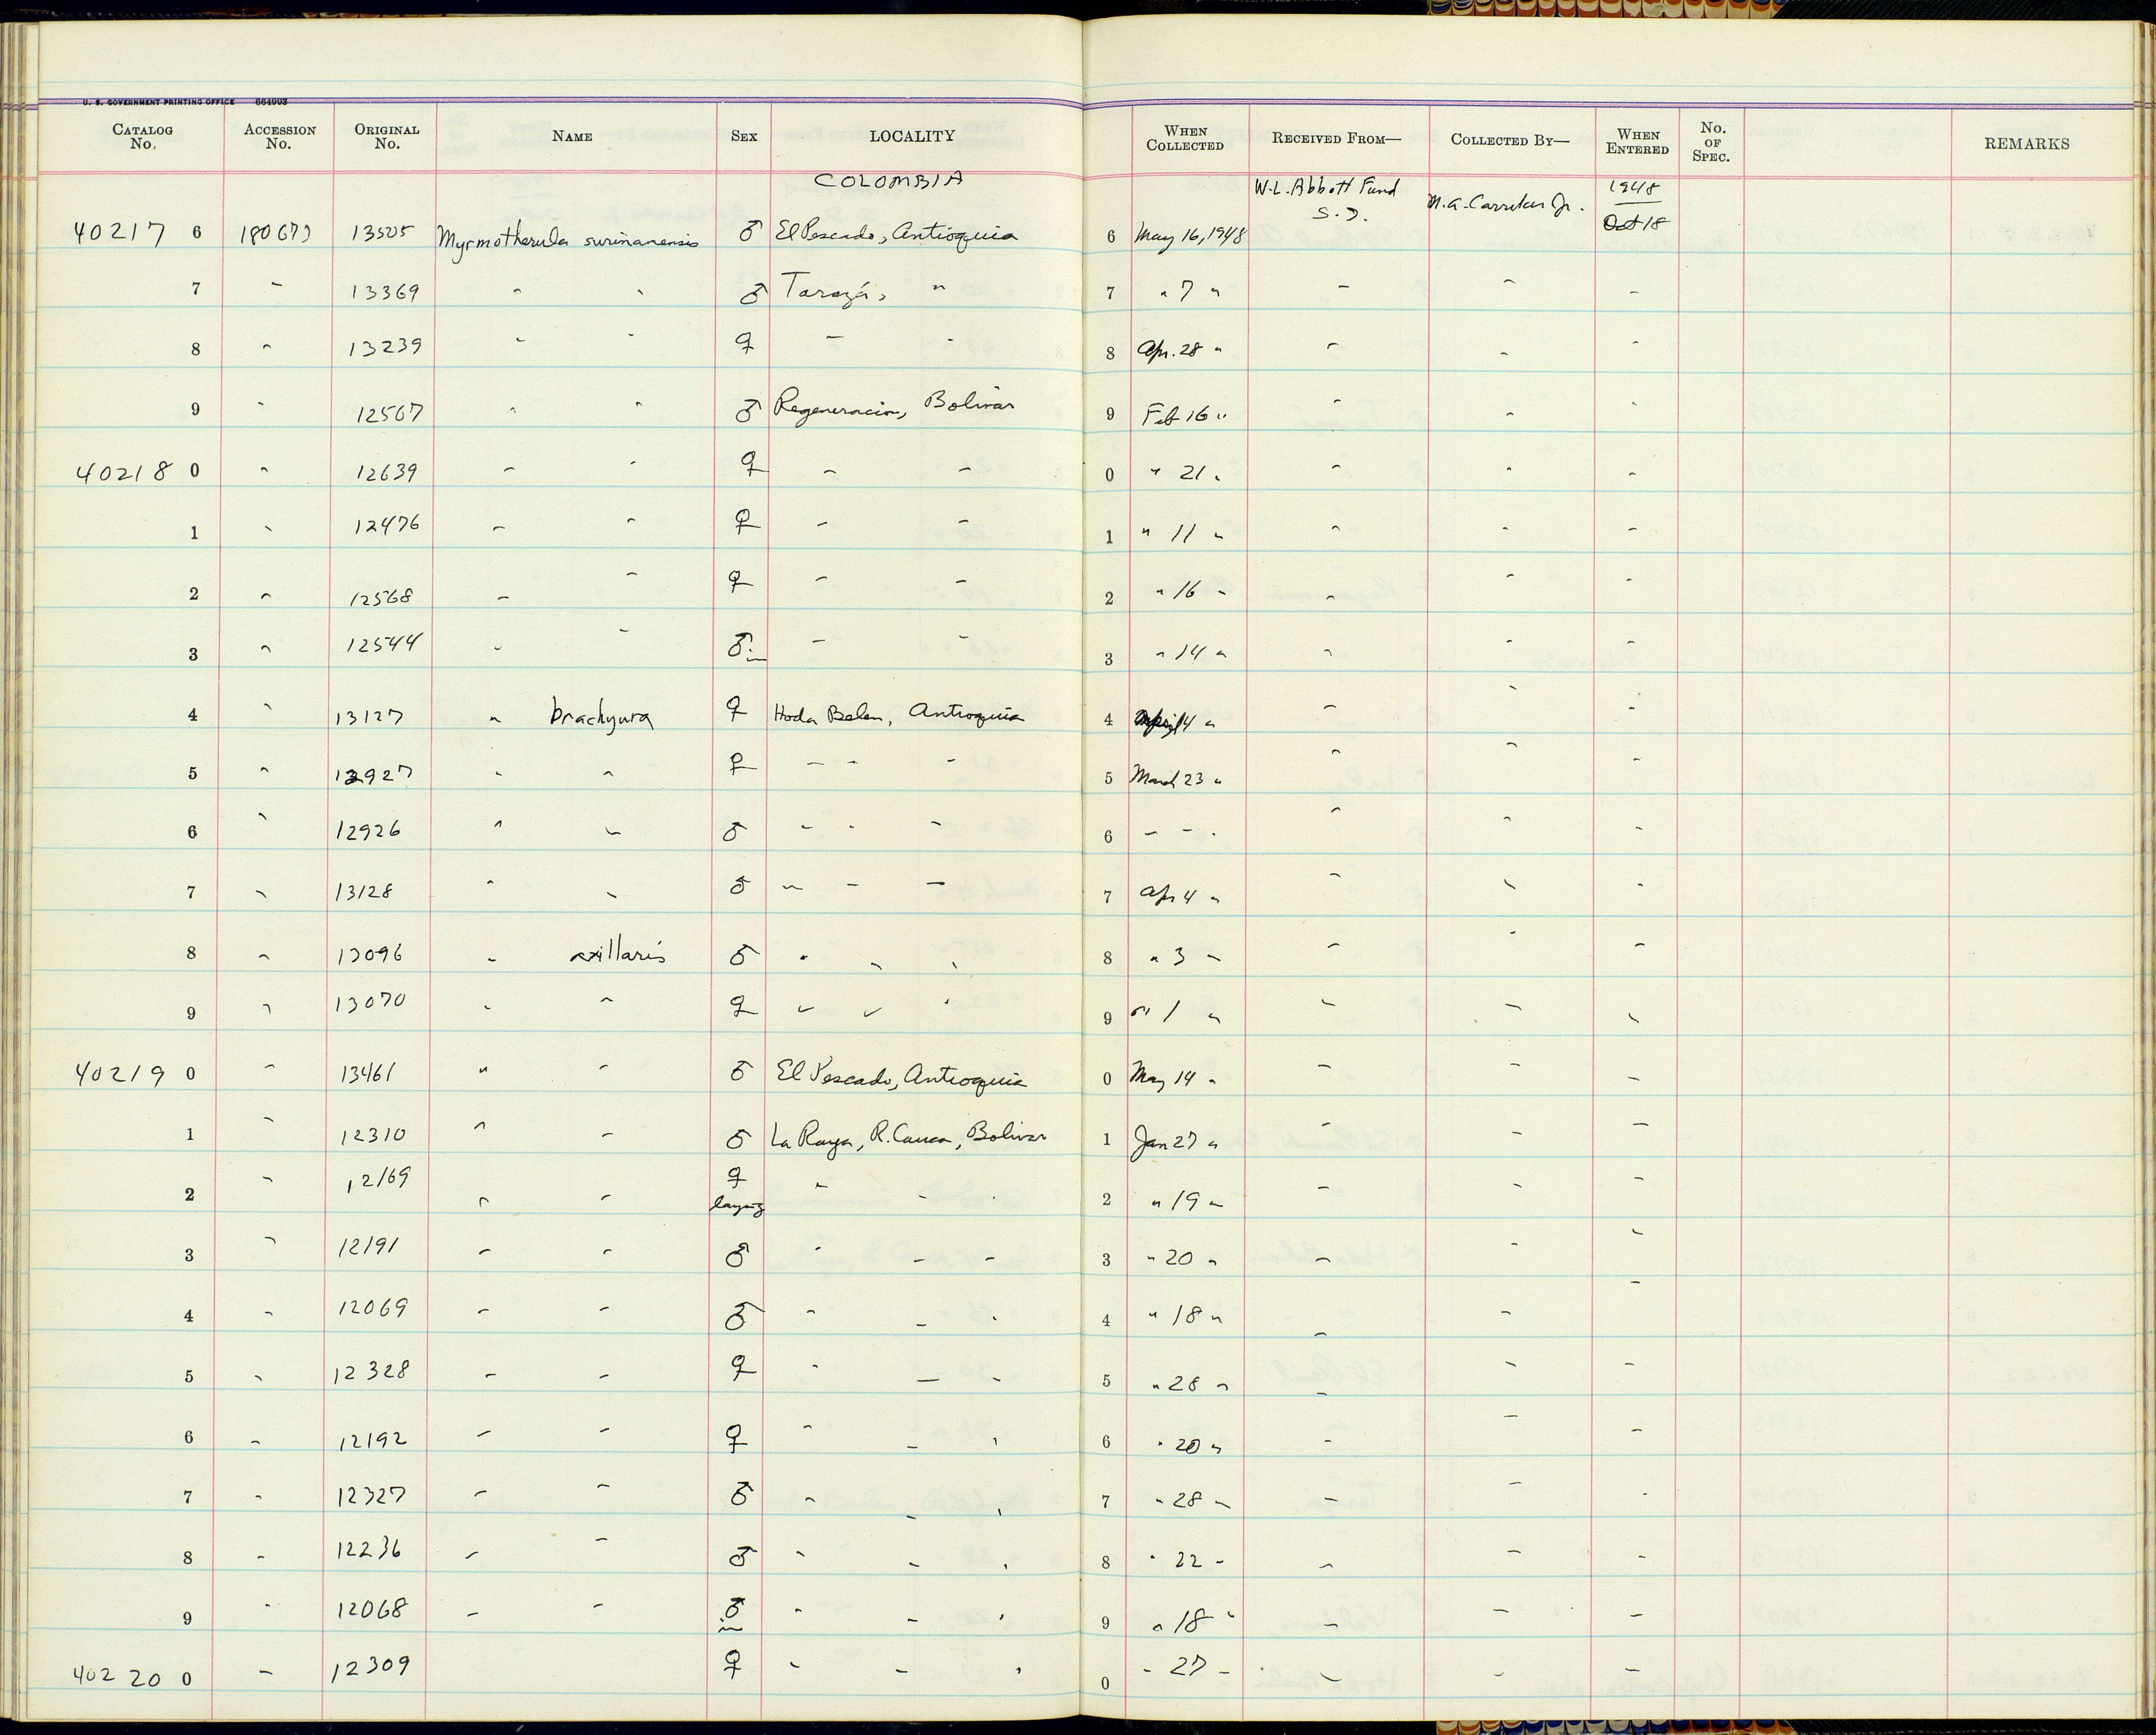 U. S. GOVERNMENT PRINTING OFFICE 664993
CATALOG No. ACCESSION No. ORIGINAL No. NAME SEX LOCALITY WHEN COLLECTED RECEIVED FROM— COLLECTED BY— WHEN ENTERED No. OF SPEC. REMARKS
COLOMBIA W.L. Abbott Fund S.I. M.A. Carriker Jr. 1948
40217 6 180673 13505 Myrmotherula surinamensis ♂ El Pescado, Antioquia 6 May 16, 1948 Oct 18
7 " 13369 " " ♂ Tarazá, " 7 " 7 " " " "
8 " 13239 " " ♀ " " 8 Apr. 28 " " " "
9 " 12567 " " ♂ Regeneracion, Bolivar 9 Feb 16 " " " "
40218 0 " 12639 " " ♀ " " 0 " 21 " " " "
1 " 12476 " " ♀ " " 1 " 11 " " " "
2 " 12568 " " ♀ " " 2 " 16 " " " "
3 " 12544 " " ♂ im " " 3 " 14 " " " "
4 " 13127 " brachyura ♀ Hoda Belen, Antioquia 4 4 " " " "
5 " 12927 " " ♀ " " " 5 March 23 " " " "
6 " 12926 " " ♂ " " " 6 " " " " " "
7 " 13128 " " ♂ " " " 7 Apr 4 " " " "
8 " 13096 " axillaris ♂ " " " 8 " 3 " " " "
9 " 13070 " " ♀ " " " 9 " 1 " " " "
40219 0 " 13461 " " ♂ El Pescado, Antioquia 0 May 14 " " " "
1 " 12310 " " ♂ La Raya, R. Cauca, Bolivar 1 Jan 27 " " " "
2 " 12169 " " ♀ laying " " " 2 " 19 " " " "
3 " 12191 " " ♂ " " " 3 " 20 " " " "
4 " 12069 " " ♂ " " " 4 " 18 " " " "
5 " 12328 " " ♀ " " " 5 " 28 " " " "
6 " 12192 " " ♀ " " " 6 " 20 " " " "
7 " 12327 " " ♂ " " " 7 " 28 " " " "
8 " 12236 " " ♂ " " " 8 " 22 " " " "
9 " 12068 " " ♂ im " " " 9 " 18 " " " "
40220 0 " 12309 ♀ " " " 0 " 27 " " " "